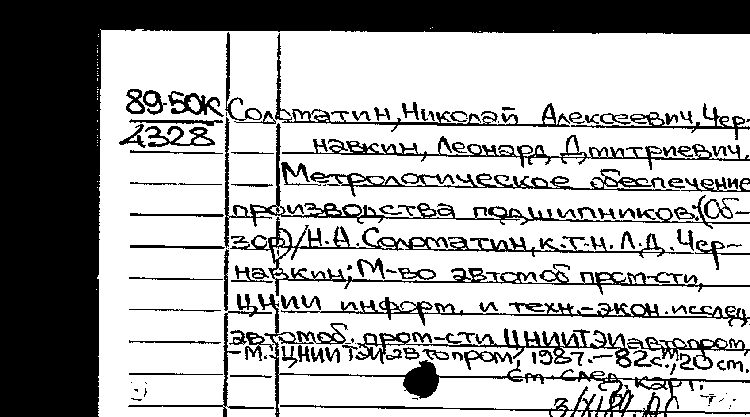 89-50К Соломатин, Николай Алексеевич, Чер-
4328 навкин, Леонард Дмитриевич.
Метрологическое обеспечение
производства подшипников: (Об-
зор) / Н.А. Соломатин, к.т.н. Л.Д. Чер-
навкин; М-во автомоб пром-сти,
ЦНИИ информ. и техн.-экон. исслед
автомоб. пром-сти ЦНИИТЭИавтопром,
-М.: ЦНИИТЭИавтопром, 1987. - 82с.; 20 см.
См. след. карт.